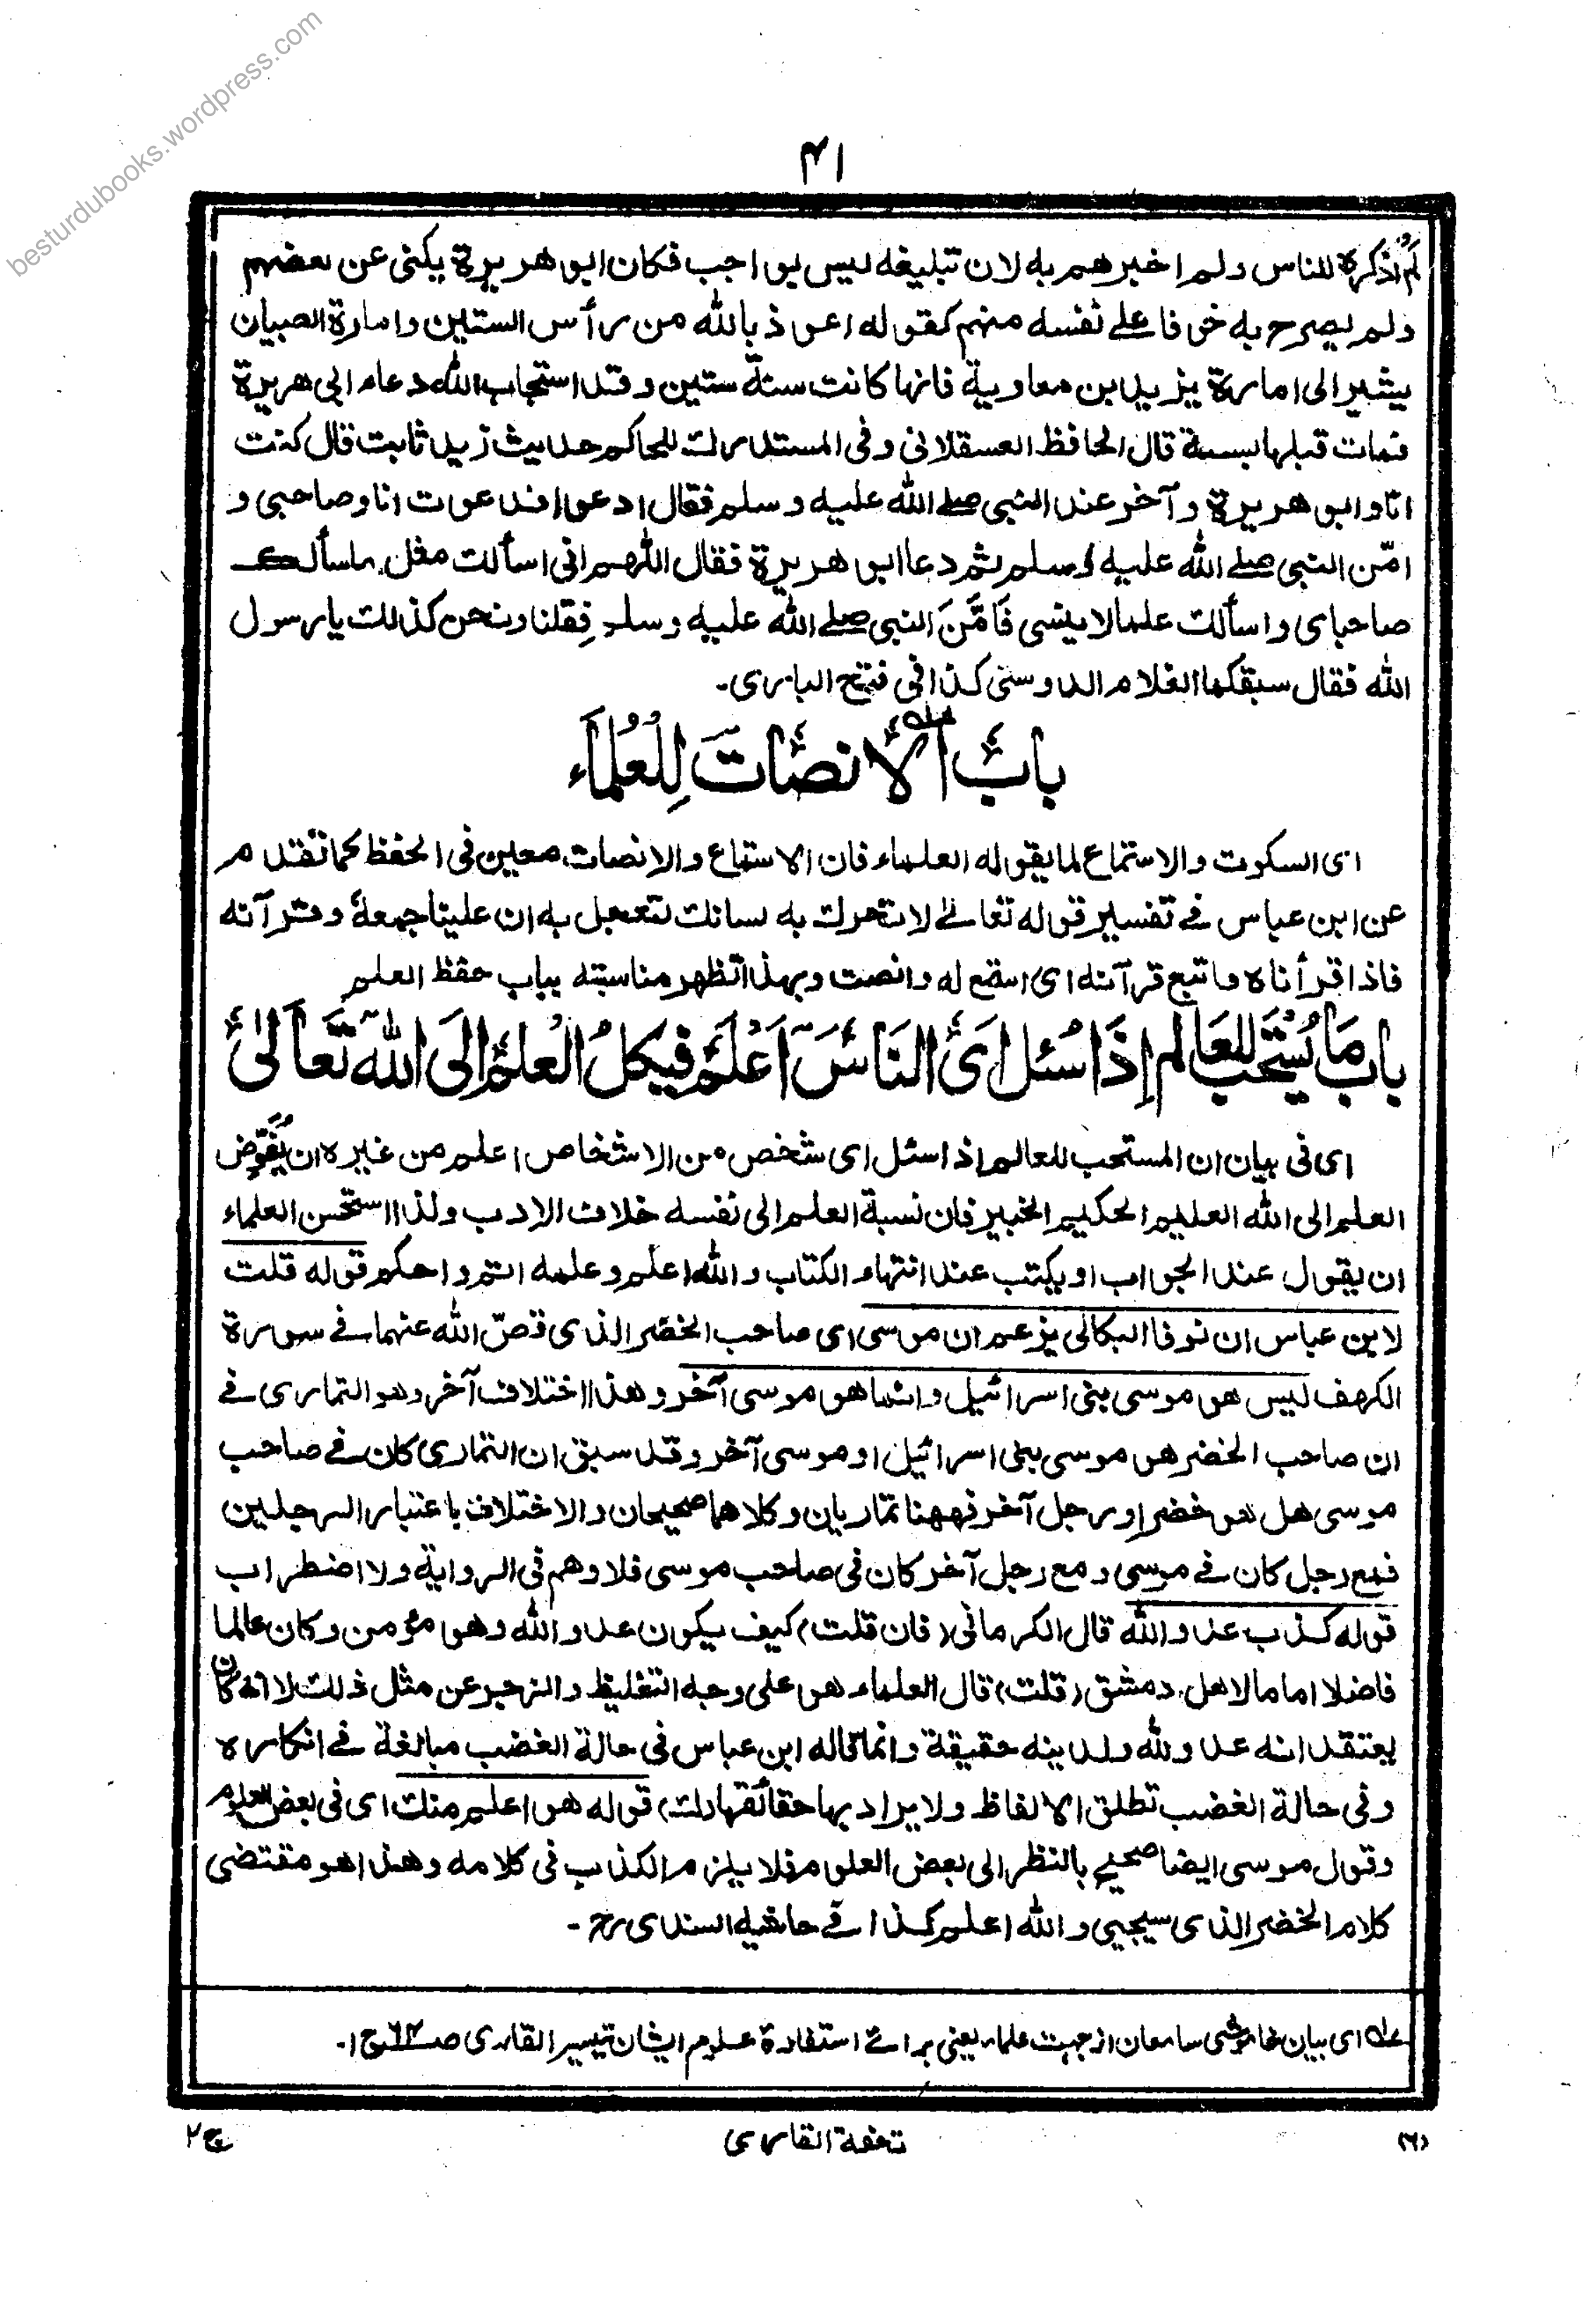 besturdubooks.wordpress.com
۴۱
لم اذكره للناس ولم اخبرهم به لان تبليغه ليس بواجب فكان ابو هريرة يكنى عن بعضهم
ولم يصرح به خوفا على نفسه منهم كقوله اعوذ بالله من رأس الستين وامارة الصبيان
يشير الى امارة يزيد ابن معاوية فانها كانت سنة ستين وقد استجاب الله دعاء ابى هريرة
فمات قبلها بسنة قال الحافظ العسقلانى وفى المستدرك للحاكم حديث زيد ثابت قال كنت
انا وابو هريرة وآخر عند النبى صلے الله عليه وسلم فقال ادعوا فدعوت انا وصاحبى و
امّن النبى صلے الله عليه وسلم ثم دعا ابو هريرة فقال اللهم انى اسألك مثل ما سألك
صاحباى واسألك علما لا ينسى فَامَّنَ النبى صلے الله عليه وسلم فقلنا ونحن كذلك يا رسول
الله فقال سبقكما الغلام الدوسى كذا فى فتح البارى۔
بابُ الْاِنصَاتِ لِلْعُلَمَاء
اى السكوت والاستماع لما يقوله العلماء فان الاستماع والانصات معين فى الحفظ كما تقدم
عن ابن عباس فے تفسير قوله تعالے لا تحرك به لسانك لتعجل به ان علينا جمعه وقرآنه
فاذا قرأناه فاتبع قرآنه اى استمع له وانصت وبهذا تظهر مناسبته بباب حفظ العلم
باب مَا يُسْتَحَبُّ لِلعَالِمِ اِذَا سُئِلَ اَىُّ النَّاسِ اَعْلَمُ فَيَكِلُ الْعِلْمَ اِلَى اللهِ تَعَالىٰ
اى فى بيان ان المستحب للعالم اذا سئل اى شخص من الاشخاص اعلم من غيره ان يُفَوِّض
العلم الى الله العليم الحكيم الخبير فان نسبة العلم الى نفسه خلاف الادب ولذا استحسن العلماء
ان يقول عند الجواب او يكتب عند انتهاء الكتاب والله اعلم وعلمه اتم واحكم قوله قلت
لابن عباس ان نوفا البكالى يزعم ان موسى اى صاحب الخضر الذى قصّ الله عنهما فے سورة
الكهف ليس هو موسى بنى اسرائيل وانما هو موسى آخر وهذا اختلاف آخر وهو التمارى فے
ان صاحب الخضر هو موسى بنى اسرائيل او موسى آخر وقد سبق ان التمارى كان فے صاحب
موسى هل هو خضر او رجل آخر فههنا تماريان وكلاهما صحيحان والاختلاف باعتبار الرجلين
فمع رجل كان فے موسى ومع رجل آخر كان فى صاحب موسى فلا وهم فى الرواية ولا اضطراب
قوله كذب عدو الله قال الكرمانى (فان قلت) كيف يكون عدو الله وهو مؤمن وكان عالما
فاضلا اماما لاهل دمشق (قلت) قال العلماء هو على وجه التغليظ والزجر عن مثل ذلك لا انه كان
يعتقد انه عدو لله ولدينه حقيقة وانما قاله ابن عباس فى حالة الغضب مبالغة فے انكاره
وفى حالة الغضب تطلق الالفاظ ولا يراد بها حقائقها (ك) قوله هو اعلم منك اى فى بعض العلوم
وقول موسى ايضا صحيح بالنظر الى بعض العلوم فلا يلزم الكذب فى كلامه وهذا هو مقتضى
كلام الخضر الذى سيجيئ والله اعلم كذا فے حاشية السندى رح۔
عله اى بيان خاموشى سامعان از جهت علماء يعنى برائے استفادة علوم ايشان تيسير القارى صـ٦٢ ج١۔
(٦)
تحفة القارى
ج٢